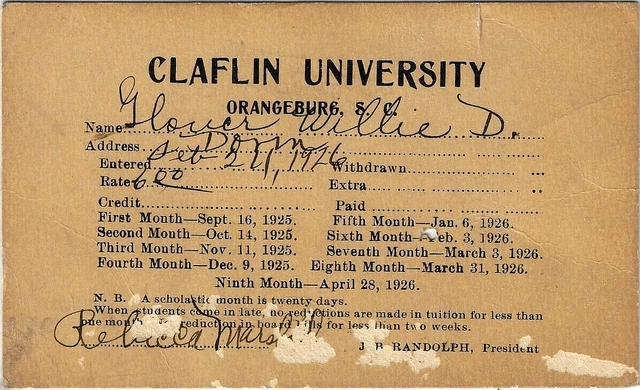 CLAFLIN UNIVERSITY
ORANGEBURG, S. C.
Name Glover Willie D.
Address Dorm
Entered Feb 24, 1926 Withdrawn
Rate 6.00 Extra
Credit Paid
First Month—Sept. 16, 1925. Fifth Month—Jan. 6, 1926.
Second Month—Oct. 14, 1925. Sixth Month—Feb. 3, 1926.
Third Month—Nov. 11, 1925. Seventh Month—March 3, 1926.
Fourth Month—Dec. 9, 1925. Eighth Month—March 31, 1926.
Ninth Month—April 28, 1926.
N. B. A scholastic month is twenty days.
When students come in late, no reductions are made in tuition for less than
one month reduction in board bills for less than two weeks.
Rebecca Marsh
J. B. RANDOLPH, President